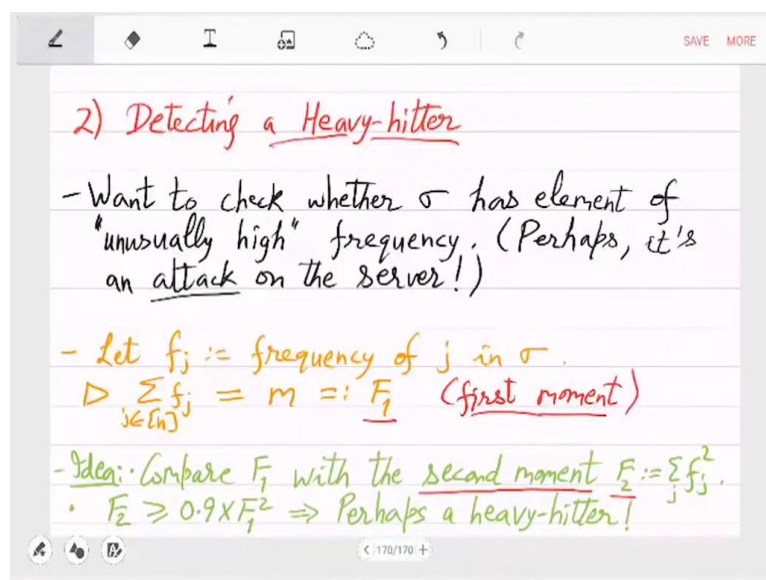 SAVE MORE
2) Detecting a Heavy-hitter
- Want to check whether σ has element of
"unusually high" frequency. (Perhaps, it's
an attack on the server!)
- Let f_j := frequency of j in σ.
▷ Σ_{j∈[n]} f_j = m =: F_1 (first moment)
- Idea: · Compare F_1 with the second moment F_2 := Σ_j f_j^2.
· F_2 ⩾ 0.9 × F_1^2 ⇒ Perhaps a heavy-hitter!
< 170/170 +